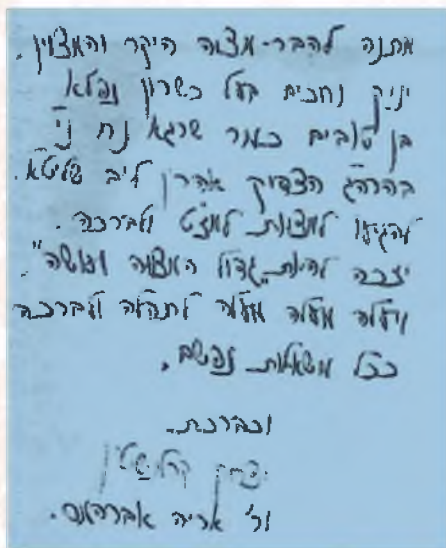 מתנה להבר-מצוה היקר והמצוין.
יניק וחכים בעל כשרון נפלא
בן טובים כמר שרגא נח ני"
בהרה"ג הצדיק אהרן ליב שליט"א.
להגיעו למצוות למז"ט ולברכה.
יזכה להיות "גדול המצווה ועושה"
ויעלה מעלה מעלה לתהלה ולברכה
ככל משאלות נפשם.
וכברכת
יצחק
ור' אריה אברהם.